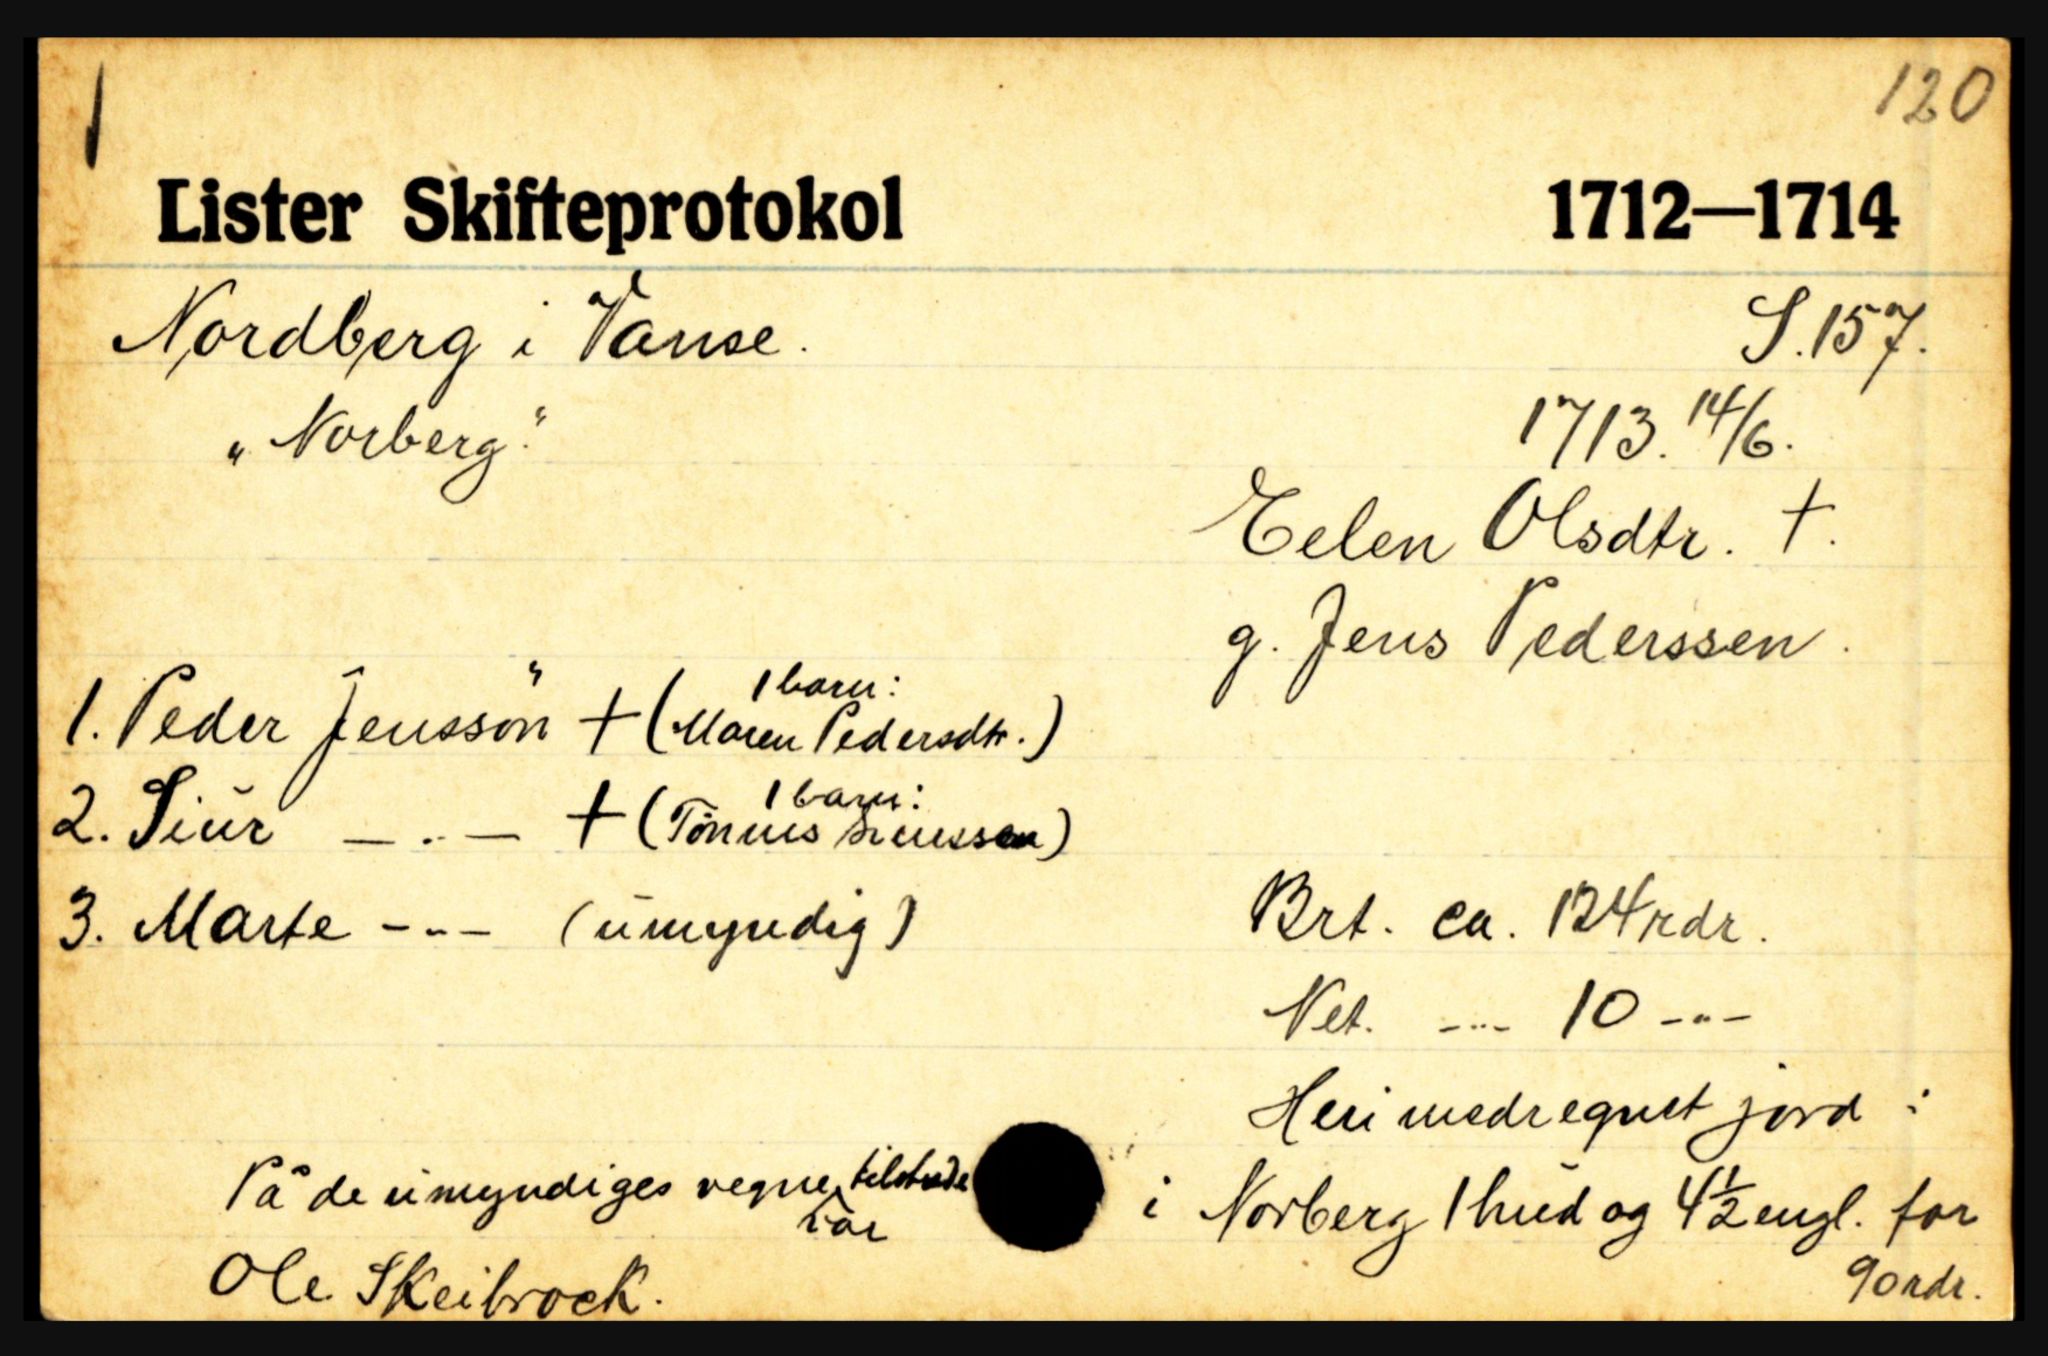 1
120
Lister Skifteprotokol 1712—1714
Nordberg i Vanse. S. 157.
„Norberg." 1713. 14/6.
Eelen Olsdtr. †.
g. Jens Pederssen.
1. Peder Jenssön † (1 barn: Maren Pedersdtr.)
2. Siur — „ — † (1 barn: Tönnes Siurssen)
3. Marte - „ - (umyndig)
Brt. ca. 124 rdr.
Net. - „ - 10 - „ -
Heri medregnet jord :
i Norberg 1 hud og 4 1/2 engl. for
90 rdr.
På de umyndiges vegne var tilstede
Ole Skeibrock.